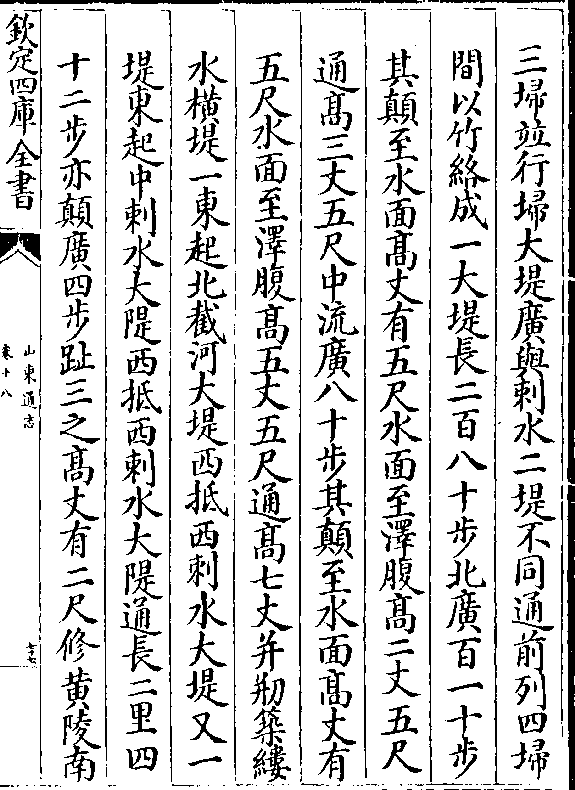 三埽並行埽大堤廣與刺水二堤不同通前列四埽
間以竹絡成一大堤長二百八十步北廣百一十步
其顛至水面高丈有五尺水面至澤腹高二丈五尺
通高三丈五尺中流廣八十步其顛至水面高丈有
五尺水面至澤腹高五丈五尺通高七丈并刱築縷
水橫堤一東起北截河大堤西抵西刺水大堤又一
堤東起中刺水大隄西抵西刺水大隄通長二里四
十二步亦顛廣四步趾三之高丈有二尺修黄陵南
欽定四庫全書
山東通志
卷十八